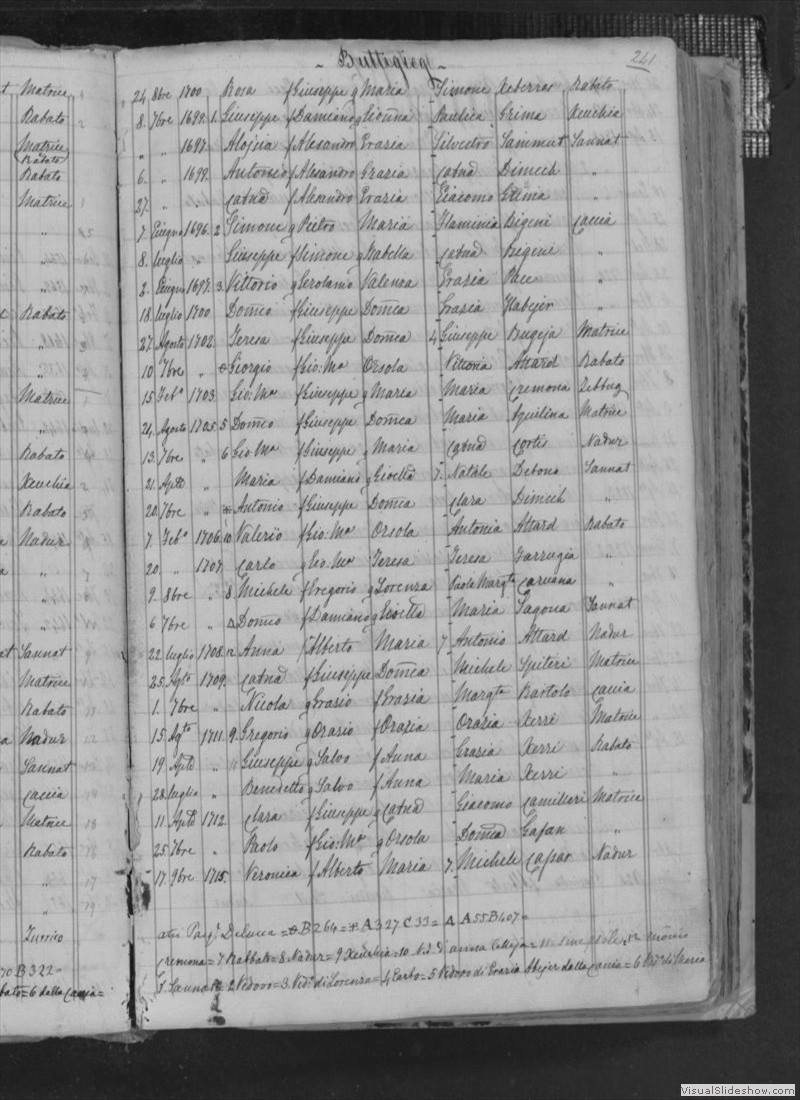 Matrice
Rabato
Matrice
Rabato
Rabato
Matrice
"
"
"
Rabato
"
Matrice
"
Rabato
Xeuchia
Rabato
Nadur
"
Sannat
Matrice
Rabato
Nadur
Sannat
Caccia
Matrice
Rabato
"
"
Zurrico
B 322
6 dalla Caccia =
- Buttigieg -
241
24. 8bre 1700 Rosa f Giuseppe g Maria Simone Xeberras Rabato
8. 7bre 1699. 1. Giuseppe f Damiano g Gioanna Paulica Grima Xeuchia
" " 1697. Alojsia f Alesandro Grazia Silvestro Sammut Sannat
6. " 1699. Antonio f Alesandro Grazia Catnd Dimech "
27. " " Catnd f Alesandro Grazia Giacomo Grima "
7. Giugno 1696. 2 Simone g Pietro Maria Flaminia Bigeni Caccia
8. luglio " Giuseppe f Simone g Isabella Catnd Bigeni "
2. Giugno 1697. 3. Vittorio g Gerolamo Valenza Grazia Pace "
18. luglio 1700 Domco f Giuseppe Domca Grazia Habejer "
27. Agosto 1702. Teresa f Giuseppe Domca 4 Giuseppe Bugeja Matrice
10. 7bre " Giorgio f Gio: Ma Orsola Vittoria Attard Rabato
15. Febo 1703. Gio: Ma f Giuseppe g Maria Maria Cremona Zebbug
24. Agosto 1705. 5 Domco f Giuseppe Domca Maria Aquilina Matrice
13. 7bre " 6 Gio Ma f Giuseppe g Maria Catnd Corti Nadur
21. " Maria f Damiano g Gioella 7. Natale Debona Sannat
20. 7bre " Antonio f Giuseppe Domca Clara Dimech "
7. Febo 1706. 10 Valerio f Gio: Ma Orsola Antonia Attard Rabato
20. " 1707. Carlo g Gio. Ma Teresa Teresa Farrugia "
9. 8bre " 8. Michele f Gregorio g Lorenza Paola Margta Caruana "
6. 7bre " Δ Domco f Damiano g Gioella Maria Sagona Sannat
22. luglio 1708. 12 Anna f Alberto Maria 7 Antonio Attard Nadur
25. Agto 1709. Catnd f Giuseppe Domca Michele Spiteri Matrice
1. 7bre " Nicola g Grazio f Grazia Margta Bartolo Caccia
15. Agto 1711. 9. Gregorio g Orazio f Orazia Orazia Xerri Matrice
19. " Giuseppe g Salvo f Anna Grazia Xerri Rabato
28. luglio " Benedetto g Salvo f Anna Maria Xerri "
11. 1712. Clara f Giuseppe g Catnd Giacomo Camilleri Matrice
25. 7bre " Paolo f Gio: Ma g Orsola Domca Gafan "
17. 9bre 1715. Veronica f Alberto Maria 7. Michele Caspar Nadur
Deluca = B 264 = A 327 C 33 = Δ A 55 B 407 =
Cremona = 7 Rabbato = 8 Nadur = 9 Xeuchia = 10. anna
Sannat = 2 Vedovo = 3. Vedo di Lorenza = 4 Carlo = 5 Vedovo di Grazia Abejer dalla Caccia = 6 Vedo di Maria
VisualSlideshow.com